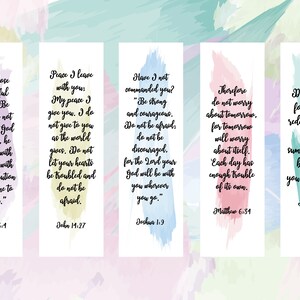 ose
ful
"Be
do not
God
with
to
."
:4
Peace I leave
with you;
My peace I
give you. I do
not give to you
as the world
gives. Do not
let your hearts
be troubled and
do not be
afraid.
John 14:27
Have I not
commanded you?
"Be strong
and courageous.
Do not be afraid;
do not be
discouraged,
for the Lord your
God will be with
you wherever
you go."
Joshua 1:9
Therefore
do not worry
about tomorrow,
for tomorrow
will worry
about itself.
Each day has
enough trouble
of its own.
Matthew 6:34
D
for
rede
summ
by
you